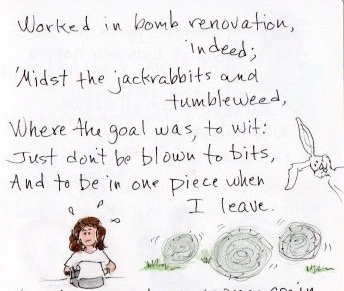 Worked in bomb renovation,
indeed;
'Midst the jackrabbits and
tumbleweed,
Where the goal was, to wit:
Just don't be blown to bits,
And to be in one piece when
I leave.